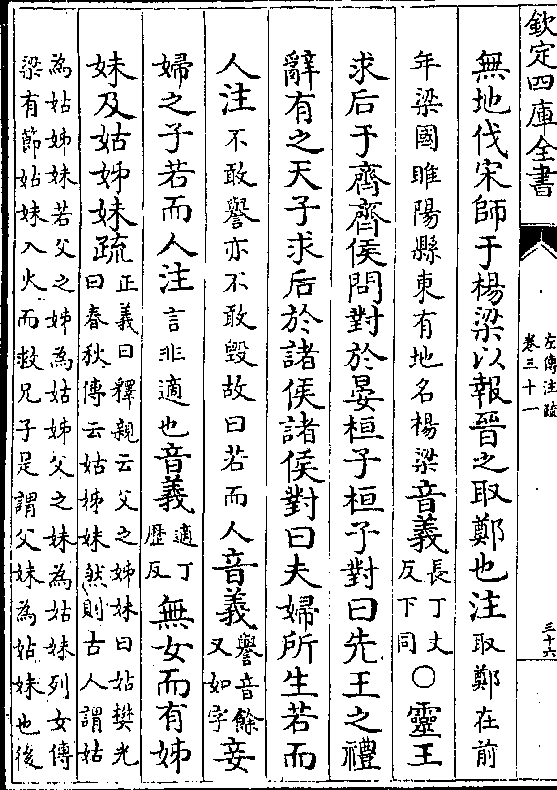 欽定四庫全書
左傳注疏
卷三十一
三十六
無地伐宋師于楊梁以報晉之取鄭也注取鄭在前
年梁國睢陽縣東有地名楊梁音義長丁丈
反下同○靈王
求后于齊齊侯問對於晏桓子桓子對曰先王之禮
辭有之天子求后於諸侯諸侯對曰夫婦所生若而
人注不敢譽亦不敢毀故曰若而人音義譽音餘
又如字妾
婦之子若而人注言非適也音義適丁
歷反無女而有姊
妹及姑姊妹疏正義曰釋親云父之姊妹曰姑樊光
曰春秋傳云姑姊妹然則古人謂姑
為姑姊妹若父之姊為姑姊父之妹為姑妹列女傳
梁有節姑妹入火而救兄子是謂父妹為姑妹也後